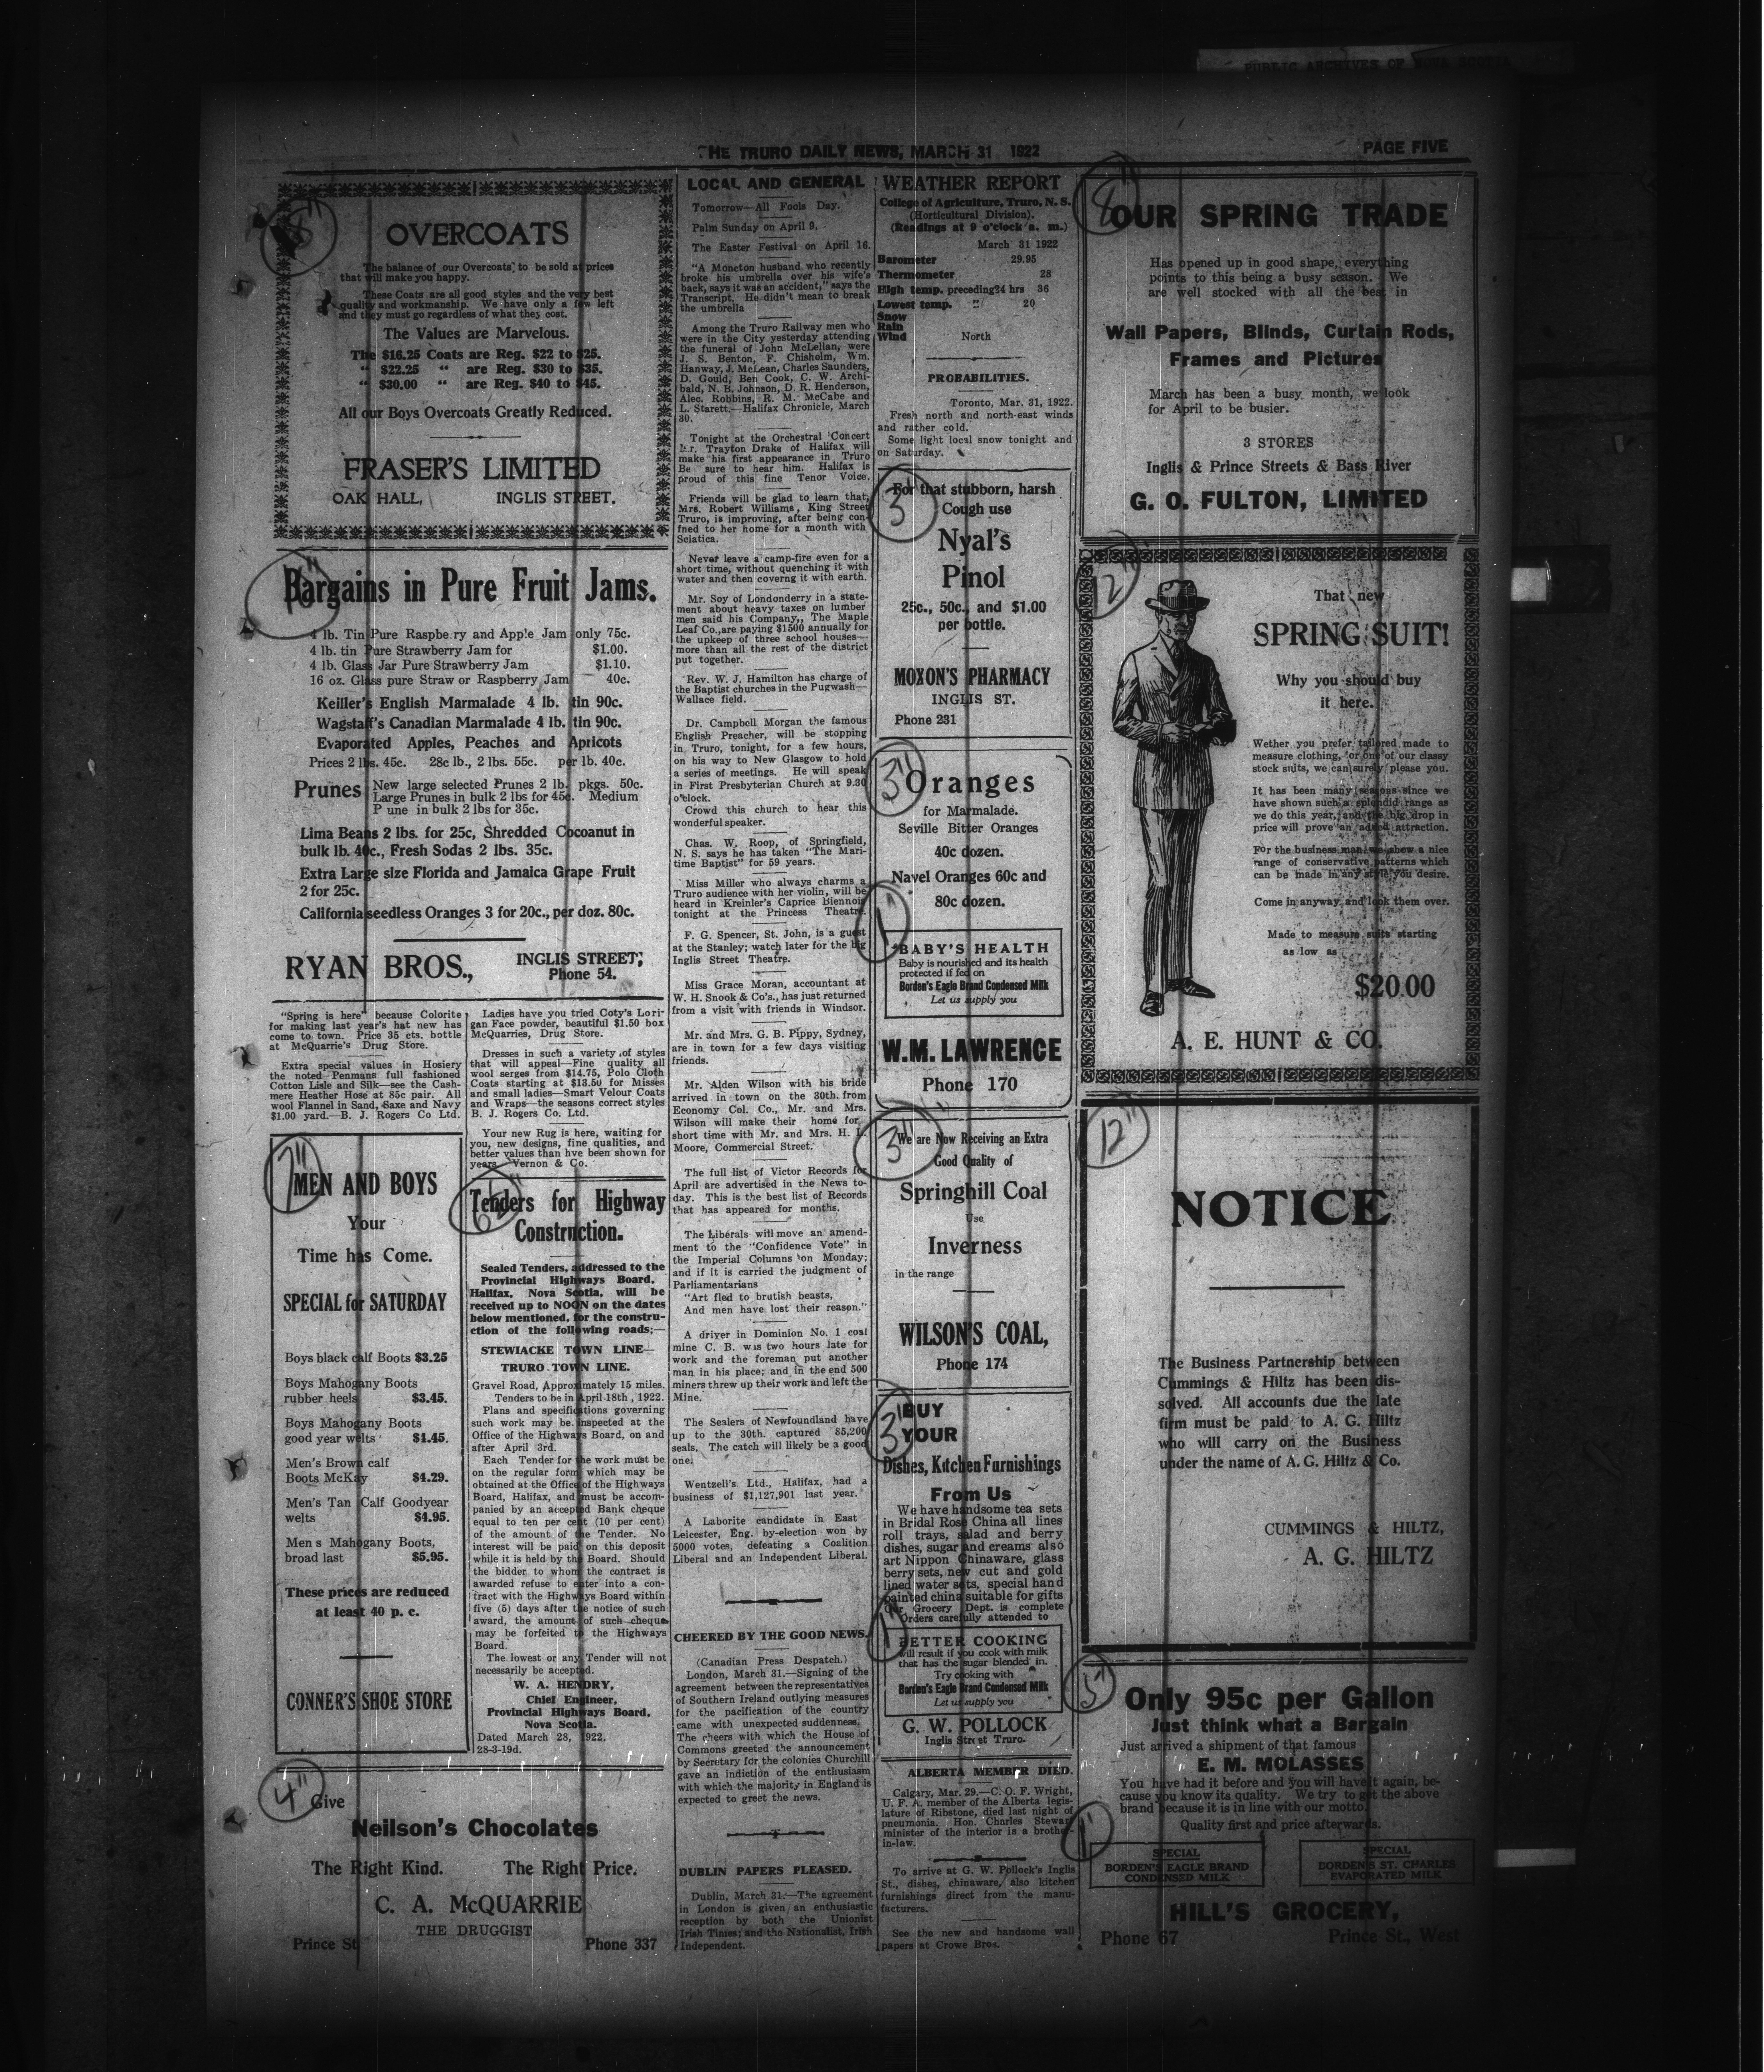 PUBLIC ARCHIVES OF NOVA SCOTIA
THE TRURO DAILY NEWS, MARCH 31 1922
PAGE FIVE
OVERCOATS
The balance of our Overcoats to be sold at prices
that will make you happy.
These Coats are all good styles and the very best
quality and workmanship. We have only a few left
and they must go regardless of what they cost.
The Values are Marvelous.
The $16.25 Coats are Reg. $22 to $25.
" $22.25 " are Reg. $30 to $35.
" $30.00 " are Reg. $40 to $45.
All our Boys Overcoats Greatly Reduced.
FRASER'S LIMITED
OAK HALL, INGLIS STREET.
Bargains in Pure Fruit Jams.
4 lb. Tin Pure Raspberry and Apple Jam only 75c.
4 lb. tin Pure Strawberry Jam for $1.00.
4 lb. Glass Jar Pure Strawberry Jam $1.10.
16 oz. Glass pure Straw or Raspberry Jam 40c.
Keiller's English Marmalade 4 lb. tin 90c.
Wagstaff's Canadian Marmalade 4 lb. tin 90c.
Evaporated Apples, Peaches and Apricots
Prices 2 lbs. 45c. 28c lb., 2 lbs. 55c. per lb. 40c.
Prunes
New large selected Prunes 2 lb. pkgs. 50c.
Large Prunes in bulk 2 lbs for 45c. Medium
P une in bulk 2 lbs for 35c.
Lima Beans 2 lbs. for 25c, Shredded Cocoanut in
bulk lb. 40c., Fresh Sodas 2 lbs. 35c.
Extra Large size Florida and Jamaica Grape Fruit
2 for 25c.
California seedless Oranges 3 for 20c., per doz. 80c.
RYAN BROS.,
INGLIS STREET,
Phone 54.
"Spring is here" because Colorite
for making last year's hat new has
come to town. Price 35 cts. bottle
at McQuarrie's Drug Store.
Extra special values in Hosiery
the noted Penmans full fashioned
Cotton Lisle and Silk—see the Cash-
mere Heather Hose at 85c pair. All
wool Flannel in Sand, Saxe and Navy
$1.00 yard.—B. J. Rogers Co Ltd.
7"
MEN AND BOYS
Your
Time has Come.
SPECIAL for SATURDAY
Boys black calf Boots $3.25
Boys Mahogany Boots
rubber heels $3.45.
Boys Mahogany Boots
good year welts $1.45.
Men's Brown calf
Boots McKay $4.29.
Men's Tan Calf Goodyear
welts $4.95.
Men s Mahogany Boots,
broad last $5.95.
These prices are reduced
at least 40 p. c.
CONNER'S SHOE STORE
Ladies have you tried Coty's Lori-
gan Face powder, beautiful $1.50 box
McQuarries, Drug Store.
Dresses in such a variety of styles
that will appeal—Fine quality all
wool serges from $14.75, Polo Cloth
Coats starting at $13.50 for Misses
and small ladies—Smart Velour Coats
and Wraps—the seasons correct styles
B. J. Rogers Co. Ltd.
Your new Rug is here, waiting for
you, new designs, fine qualities, and
better values than hve been shown for
years. Vernon & Co.
Tenders for Highway
Construction.
Sealed Tenders, addressed to the
Provincial Highways Board,
Halifax, Nova Scotia, will be
received up to NOON on the dates
below mentioned, for the constru-
ction of the following roads;—
STEWIACKE TOWN LINE—
TRURO TOWN LINE.
Gravel Road, Approximately 15 miles.
Tenders to be in April 18th , 1922.
Plans and specifications governing
such work may be inspected at the
Office of the Highways Board, on and
after April 3rd.
Each Tender for the work must be
on the regular form which may be
obtained at the Office of the Highways
Board, Halifax, and must be accom-
panied by an accepted Bank cheque
equal to ten per cent (10 per cent)
of the amount of the Tender. No
interest will be paid on this deposit
while it is held by the Board. Should
the bidder to whom the contract is
awarded refuse to enter into a con-
tract with the Highways Board within
five (5) days after the notice of such
award, the amount of such cheque
may be forfeited to the Highways
Board.
The lowest or any Tender will not
necessarily be accepted.
W. A. HENDRY,
Chief Engineer,
Provincial Highways Board,
Nova Scotia.
Dated March 28, 1922.
28-3-19d.
4"
Give
Neilson's Chocolates
The Right Kind. The Right Price.
C. A. McQUARRIE
THE DRUGGIST
Prince St Phone 337
LOCAL AND GENERAL
Tomorrow—All Fools Day.
Palm Sunday on April 9.
The Easter Festival on April 16.
"A Moncton husband who recently
broke his umbrella over his wife's
back, says it was an accident," says the
Transcript. He didn't mean to break
the umbrella
Among the Truro Railway men who
were in the City yesterday attending
the funeral of John McLellan, were
J. S. Benton, F. Chisholm, Wm.
Hanway, J. McLean, Charles Saunders,
D. Gould, Ben Cook, C. W. Archi-
bald, N. B. Johnson, D. R. Henderson,
Alec. Robbins, R. M. McCabe and
L. Starett.—Halifax Chronicle, March
30.
Tonight at the Orchestral Concert
Mr. Trayton Drake of Halifax will
make his first appearance in Truro
Be sure to hear him. Halifax is
proud of this fine Tenor Voice.
Friends will be glad to learn that,
Mrs. Robert Williams, King Street
Truro, is improving, after being con-
fned to her home for a month with
Sciatica.
Never leave a camp-fire even for a
short time, without quenching it with
water and then coverng it with earth.
Mr. Soy of Londonderry in a state-
ment about heavy taxes on lumber
men said his Company,, The Maple
Leaf Co.,are paying $1500 annually for
the upkeep of three school houses—
more than all the rest of the district
put together.
Rev. W. J. Hamilton has charge of
the Baptist churches in the Pugwash—
Wallace field.
Dr. Campbell Morgan the famous
English Preacher, will be stopping
in Truro, tonight, for a few hours,
on his way to New Glasgow to hold
a series of meetings. He will speak
in First Presbyterian Church at 9.30
o'clock.
Crowd this church to hear this
wonderful speaker.
Chas. W. Roop, of Springfield,
N. S. says he has taken "The Mari-
time Baptist" for 59 years.
Miss Miller who always charms a
Truro audience with her violin, will be
heard in Kreinler's Caprice Biennois
tonight at the Princess Theatre.
F. G. Spencer, St. John, is a guest
at the Stanley; watch later for the big
Inglis Street Theatre.
Miss Grace Moran, accountant at
W. H. Snook & Co's., has just returned
from a visit with friends in Windsor.
Mr. and Mrs. G. B. Pippy, Sydney,
are in town for a few days visiting
friends.
Mr. Alden Wilson with his bride
arrived in town on the 30th. from
Economy Col. Co., Mr. and Mrs.
Wilson will make their home for
short time with Mr. and Mrs. H. L.
Moore, Commercial Street.
The full list of Victor Records for
April are advertised in the News to-
day. This is the best list of Records
that has appeared for months.
The Liberals will move an amend-
ment to the "Confidence Vote" in
the Imperial Columns on Monday;
and if it is carried the judgment of
Parliamentarians
"Art fled to brutish beasts,
And men have lost their reason."
A driver in Dominion No. 1 coal
mine C. B. was two hours late for
work and the foreman put another
man in his place; and in the end 500
miners threw up their work and left the
Mine.
The Sealers of Newfoundland have
up to the 30th. captured 85,200
seals. The catch will likely be a good
one.
Wentzell's Ltd., Halifax, had a
business of $1,127,901 last year.
A Laborite candidate in East
Leicester, Eng. by-election won by
5000 votes, defeating a Coalition
Liberal and an Independent Liberal.
CHEERED BY THE GOOD NEWS.
(Canadian Press Despatch.)
London, March 31.—Signing of the
agreement between the representatives
of Southern Ireland outlying measures
for the pacification of the country
came with unexpected suddenness.
The cheers with which the House of
Commons greeted the announcement
by Secretary for the colonies Churchill
gave an indiction of the enthusiasm
with which the majority in England is
expected to greet the news.
DUBLIN PAPERS PLEASED.
Dublin, March 31.—The agreement
in London is given an enthusiastic
reception by both the Unionist
Irish Times; and the Nationalist, Irish
Independent.
WEATHER REPORT
College of Agriculture, Truro, N. S.
(Horticultural Division).
(Readings at 9 o'clock a. m.)
March 31 1922
Barometer 29.95
Thermometer 28
High temp. preceding24 hrs 36
Lowest temp. " 20
Snow
Rain
Wind North
PROBABILITIES.
Toronto, Mar. 31, 1922.
Fresh north and north-east winds
and rather cold.
Some light local snow tonight and
on Saturday.
3"
For that stubborn, harsh
Cough use
Nyal's
Pinol
25c., 50c., and $1.00
per bottle.
MOXON'S PHARMACY
INGLIS ST.
Phone 231
3"
Oranges
for Marmalade.
Seville Bitter Oranges
40c dozen.
Navel Oranges 60c and
80c dozen.
1"
BABY'S HEALTH
Baby is nourished and its health
protected if fed on
Borden's Eagle Brand Condensed Milk
Let us supply you
W.M. LAWRENCE
Phone 170
3"
We are Now Receiving an Extra
Good Quality of
Springhill Coal
Use
Inverness
in the range
WILSON'S COAL,
Phone 174
3"
BUY
YOUR
Dishes, Kitchen Furnishings
From Us
We have handsome tea sets
in Bridal Rose China all lines
roll trays, salad and berry
dishes, sugar and creams also
art Nippon Chinaware, glass
berry sets, new cut and gold
lined water sets, special hand
painted china suitable for gifts
Our Grocery Dept. is complete
Orders carefully attended to
1"
BETTER COOKING
will result if you cook with milk
that has the sugar blended in.
Try cooking with
Borden's Eagle Brand Condensed Milk
Let us supply you
G. W. POLLOCK
Inglis Street Truro.
ALBERTA MEMBER DIED.
Calgary, Mar. 29.—C. O. F. Wright,
U. F. A. member of the Alberta legis-
lature of Ribstone, died last night of
pneumonia. Hon. Charles Stewart
minister of the interior is a brother-
in-law.
To arrive at G. W. Pollock's Inglis
St., dishes, chinaware, also kitchen
furnishings direct from the manu-
facturers.
See the new and handsome wall
papers at Crowe Bros.
8"
OUR SPRING TRADE
Has opened up in good shape, everything
points to this being a busy season. We
are well stocked with all the best in
Wall Papers, Blinds, Curtain Rods,
Frames and Pictures
March has been a busy month, we look
for April to be busier.
3 STORES
Inglis & Prince Streets & Bass River
G. O. FULTON, LIMITED
12"
That new
SPRING SUIT!
Why you should buy
it here.
Wether you prefer tailored made to
measure clothing, or one of our classy
stock suits, we can surely please you.
It has been many seasons since we
have shown such a splendid range as
we do this year, and the big drop in
price will prove an added attraction.
For the business man we shew a nice
range of conservative patterns which
can be made in any style you desire.
Come in anyway and look them over.
Made to measure suits starting
as low as
$20.00
A. E. HUNT & CO.
12"
NOTICE
The Business Partnership between
Cummings & Hiltz has been dis-
solved. All accounts due the late
firm must be paid to A. G. Hiltz
who will carry on the Business
under the name of A. G. Hiltz & Co.
CUMMINGS & HILTZ,
A. G. HILTZ
5"
Only 95c per Gallon
Just think what a Bargain
Just arrived a shipment of that famous
E. M. MOLASSES
You have had it before and you will have it again, be-
cause you know its quality. We try to get the above
brand because it is in line with our motto.
Quality first and price afterwards.
1"
SPECIAL
BORDEN'S EAGLE BRAND
CONDENSED MILK
SPECIAL
BORDEN'S ST. CHARLES
EVAPORATED MILK
HILL'S GROCERY,
Phone 67 Prince St., West